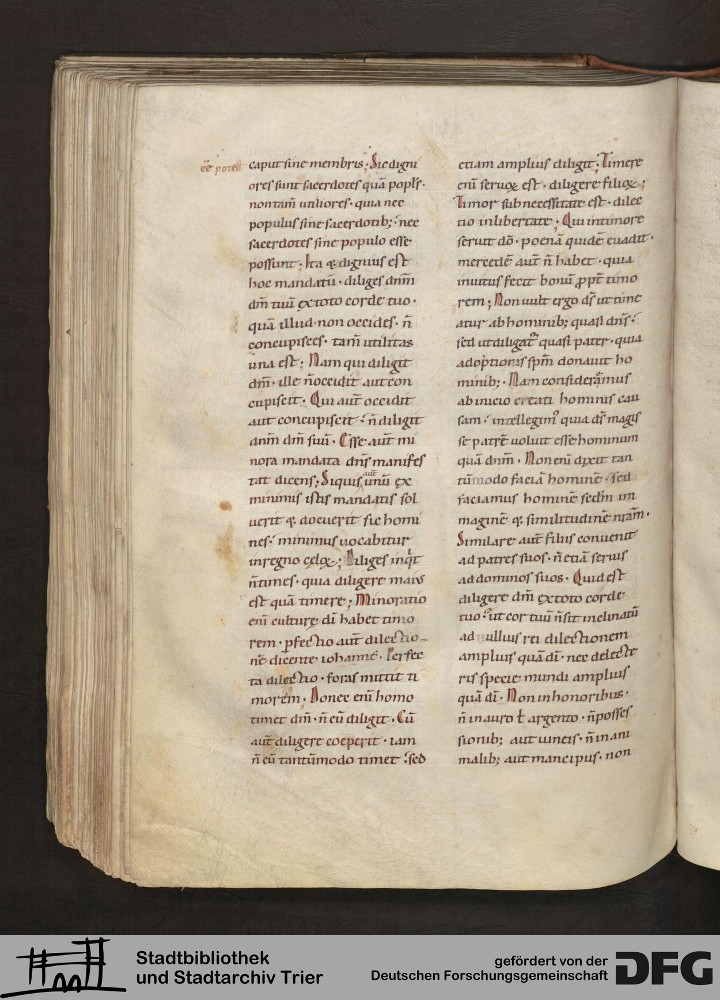 ee͂ potest
caput sine membris; Sic digni
ores sunt sacerdotes quā popl's·
non tam̄ utiliores· quia nec
populus sine sacerdotib; nec
sacerdotes sine populo esse
possunt· Ita & dignius est
hoc mandatū· diliges dn̄m
dm̄ tuū ex toto corde tuo·
quā illud· non occides· n̄
concupisces· tam̄ utilitas
una est; Nam qui diligit
dm̄· ille n̄ occidit aut con
cupiscit· Qui aut̄ occidit
aut concupiscit· n̄ diligit
dnm̄ dm̄ suū· Esse aut̄ mi
nora mandata dn̄s manifes
tat dicens; Siquis aut̄ unū ex
minimis istis mandatis sol
uerit & docuerit sic homi
nes· minimus uocabitur
in regno celoꝝ; Diliges inq̇t
n̄ times· quia diligere maius
est quā timere; Minoratio
enī culturę dī habet timo
rem· ꝑfectio aut̄ dilectio
nē dicente iohanne· Perfec
ta dilectio· foras mittit ti
morem· Donec enī homo
timet dm̄· n̄ eū diligit· Cū
aut̄ diligere coeperit· iam
n̄ eū tantūmodo timet· sed
etiam amplius diligit· Timere
enī seruoꝝ est· diligere filioꝝ;
Timor sub necessitate est· dilec
tio in libertate· Qui in timore
seruit dō· poenā quidē euadit·
mercedē aut̄ n̄ habet· quia
inuitus fecit bonū ꝓpt̄ timo
rem; Non uult ergo ds̄ ut time
atur ab hominib; quasi dn̄s·
sed ut diligat᷑ quasi pater· quia
adoptionis spm̄ donauit ho
minib; Nam consideramus
ab inicio creati hominis cau
sam· intellegim᷒ quia ds̄ magis
se patrē uoluit esse hominum
quā dnm̄· Non enī dixit tan
tūmodo faciā hominē· sed
faciamus hominē scdm̄ im
maginē & similitudinē nr̄am·
Similare aut̄ filiis conuenit
ad patres suos· n̄ etiā seruis
ad dominos suos· Quid est
diligere dm̄ ex toto corde
tuo· ut cor tuū n̄ sit inclinatū
ad ullius rei dilectionem
amplius quā dī· nec delecte
ris specie mundi amplius
quā dī· Non in honoribus·
n̄ in auro ł argento· n̄ posses
sionib; aut uineis· n̄ in ani
malib; aut mancipiis· non
Stadtbibliothek
und Stadtarchiv Trier
gefördert von der
Deutschen Forschungsgemeinschaft
DFG